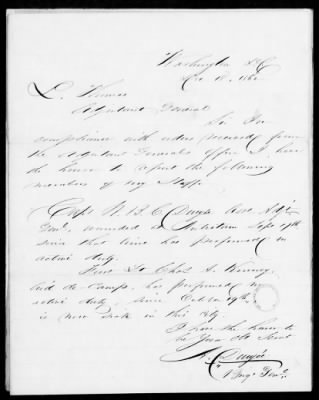 Washington D.C.
Dec 18, 1862
L. Thomas
Adjutant General
Sir In
compliance with orders received from
the Adjutant Generals office I have
the honor to report the following
members of my Staff.
Capt W. B. C. Duryee Asst. Adjt
Genl, wounded at Antietam Sept 17th
since that time has performed no
active duty.
First Lt Chas S. Kenney,
Aid de Camp, has performed no
active duty, since Oct 29th.
is now Sick in this City
I have the honor to
be Your Obt Servt
A. Duryée
Brig Genl.